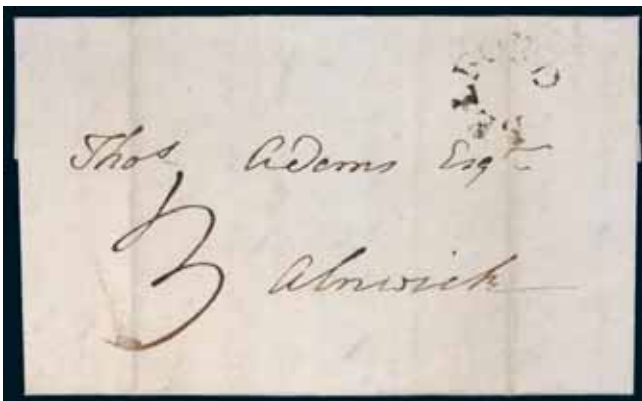 Thos Adams Esqr
3
Alnwick